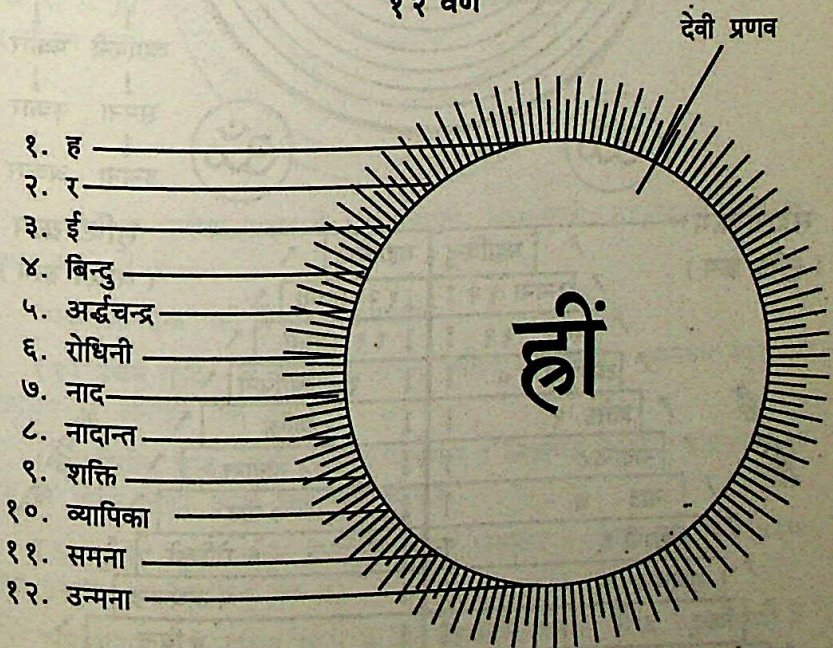 १२ वर्ण
देवी प्रणव
१. ह
२. र
३. ई
४. बिन्दु
५. अर्द्धचन्द्र
६. रोधिनी
७. नाद
८. नादान्त
९. शक्ति
१०. व्यापिका
११. समना
१२. उन्मना
ह्रीं